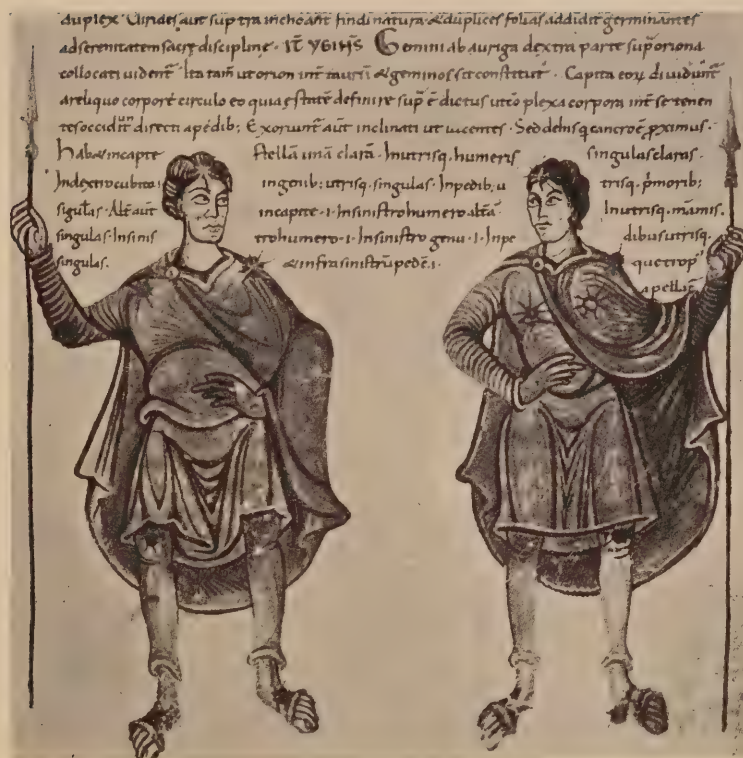 duplex. Virides aut sup tra inchoant findi natura & duplices folias addidit germinantes
ad serenitatem sacre discipline · IT YGIHS Gemini ab auriga dextra parte sup oriona
collocati uident Ita tam ut orion int tauru & geminos sit constitut · Capita eoy diuidunt
areliquo corpore circulo eo quia estate definire sup e dictus utco plexa corpora int se tenen
tes occidut directi apedib; Exoriunt aut inclinati ut iacentes · Sed dehis q cancro e pximus ·
Haba incapite stella una clara · Inutrisq · humeris singulas claras ·
Indextro cubito i ingenib; utrisq · singulas · Inpedib; u trisq · pmorib;
sigulas · Alt aut incapite · I · Insinistro humero alta Inutrisq · mamis ·
singulas · Insinis tro humero · I · Insinistro genu · I · Inpe dibus utrisq ·
singulas · & infra sinistru pede · I · que trop
apellat